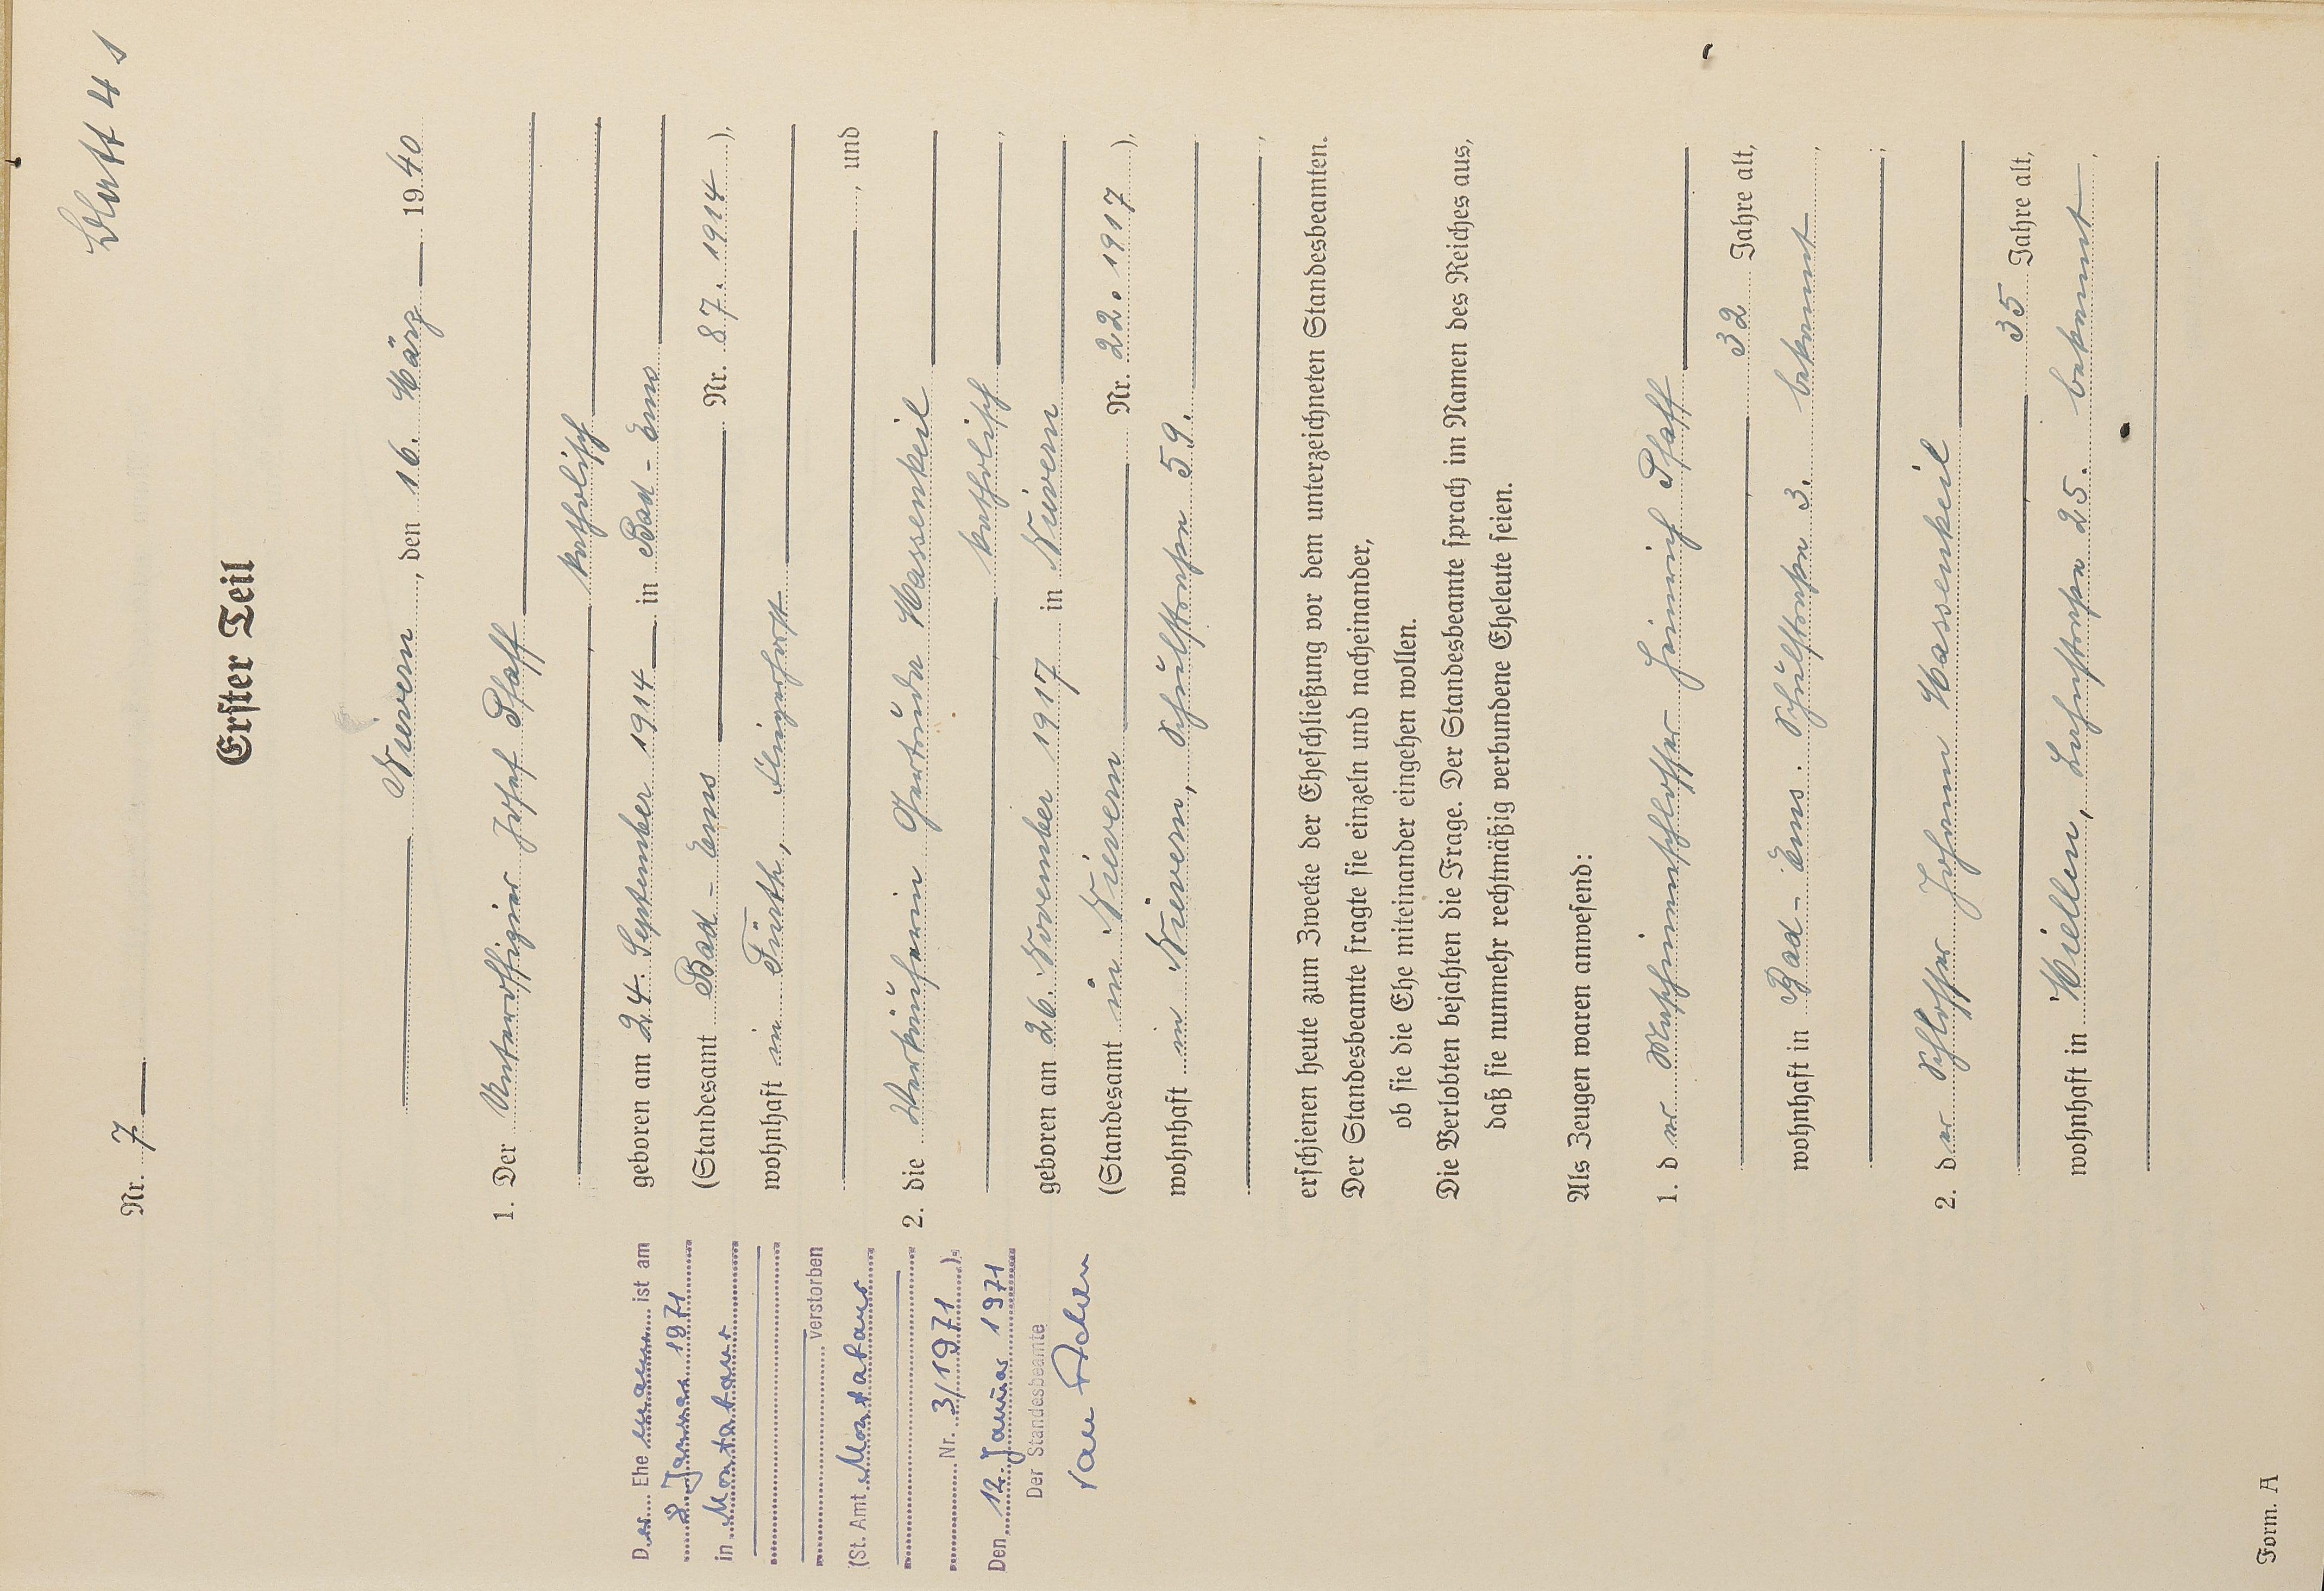 Blatt 41
Nr. 7
Erster Teil
Nievern, den 16. März 1940
1. Der Unteroffizier Josef Pfaff
katholisch
geboren am 24. September 1914 in Bad-Ems
(Standesamt Bad-Ems Nr. 87. 1914),
wohnhaft in Fürth, Fliegerhorst
, und
2. die Verkäuferin Gertrude Massenkeil
, katholisch,
geboren am 26. November 1917 in Nievern
(Standesamt in Nievern Nr. 22. 1917),
wohnhaft in Nievern, Schulstraße 59.
erschienen heute zum Zwecke der Eheschließung vor dem unterzeichneten Standesbeamten.
Der Standesbeamte fragte sie einzeln und nacheinander,
ob sie die Ehe miteinander eingehen wollen.
Die Verlobten bejahten die Frage. Der Standesbeamte sprach im Namen des Reiches aus,
daß sie nunmehr rechtmäßig verbundene Eheleute seien.
Als Zeugen waren anwesend:
1. der Maschinenschlosser Heinrich Pfaff
, 32 Jahre alt,
wohnhaft in Bad-Ems. Schulstraße 3. bekannt,
;
2. der Schlosser Johann Massenkeil
, 35 Jahre alt,
wohnhaft in Miellen, Lahnstraße 25. bekannt,
.
Der Ehemann ist am
2. Januar 1971
in Montabaur
verstorben
(St. Amt Montabaur
Nr. 3/1971).
Den 12. Januar 1971
Der Standesbeamte
Form. A